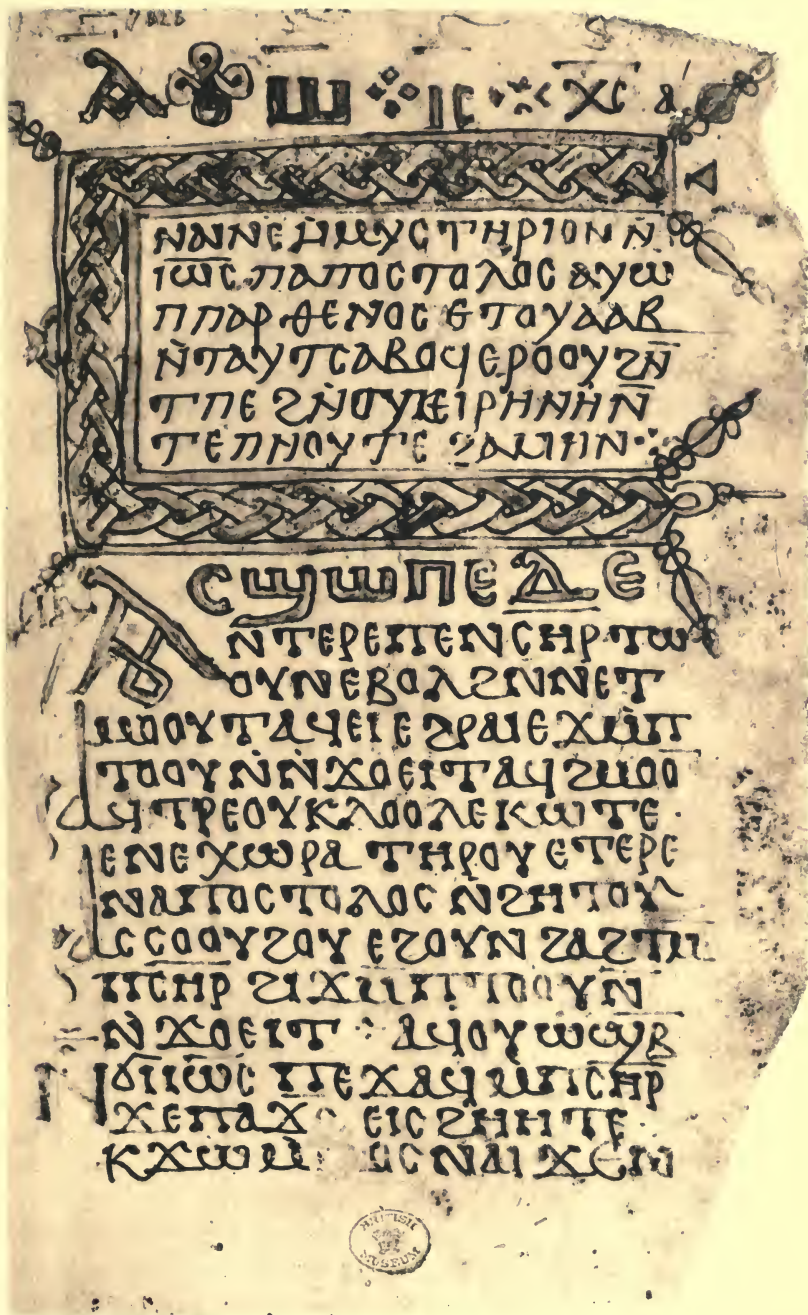 7026
Ⲁ ⲱ ⲓⲥ ⲭⲥ ⲁ
ⲛⲁⲓⲛⲉⲙⲙⲩⲥⲧⲏⲣⲓⲟⲛⲛ̄
ⲓⲱ̅ⲥ̅ⲡⲁⲡⲟⲥⲧⲟⲗⲟⲥⲁⲩⲱ
ⲡⲡⲁⲣⲑⲉⲛⲟⲥⲉⲧⲟⲩⲁⲁⲃ
ⲛ̄ⲧⲁⲩⲧⲥⲁⲃⲟϥⲉⲣⲟⲟⲩϩⲛ̄
ⲧⲡⲉϩⲛ̄ⲟⲩⲉⲓⲣⲏⲛⲏⲛ̄
ⲧⲉⲡⲛⲟⲩⲧⲉϩⲁⲙⲏⲛ
ⲁⲥϣⲱⲡⲉⲇⲉ
ⲛⲧⲉⲣⲉⲡⲉⲛⲥⲏⲣⲧⲱ
ⲟⲩⲛⲉⲃⲟⲗϩⲛⲛⲉⲧ
ⲙⲟⲟⲩⲧⲁϥⲉⲓⲉϩⲣⲁⲓⲉϫⲙ̄ⲡ
ⲧⲟⲟⲩⲛ̄ⲛ̄ϫⲟⲉⲓⲧⲁϥϩⲙⲟⲟ
ⲁϥⲧⲣⲉⲟⲩⲕⲗⲟⲟⲗⲉⲕⲱⲧⲉ
ⲉⲛⲉⲭⲱⲣⲁⲧⲏⲣⲟⲩⲉⲧⲉⲣⲉ
ⲛⲁⲡⲟⲥⲧⲟⲗⲟⲥⲛ̄ϩⲏⲧⲟⲩ
ⲁⲥⲥⲟⲟⲩϩⲟⲩⲉϩⲟⲩⲛϩⲁϩⲧⲙ
ⲡⲥⲏⲣϩⲓϫⲙⲡⲧⲟⲟⲩⲛ̄
ⲛ̄ϫⲟⲉⲓⲧ ⁘ ⲁϥⲟⲩⲱϣⲃ̄
ⲛϭⲓⲓⲱ̅ⲥ̅ⲡⲉϫⲁϥⲙ̄ⲡⲥⲏⲣ
ϫⲉⲡⲁϫ ⲉⲓⲥϩⲏⲏⲧⲉ
ⲕϫⲱⲙ ⲟⲥⲛⲁⲓϫⲉⲛ
BRITISH
MUSEUM